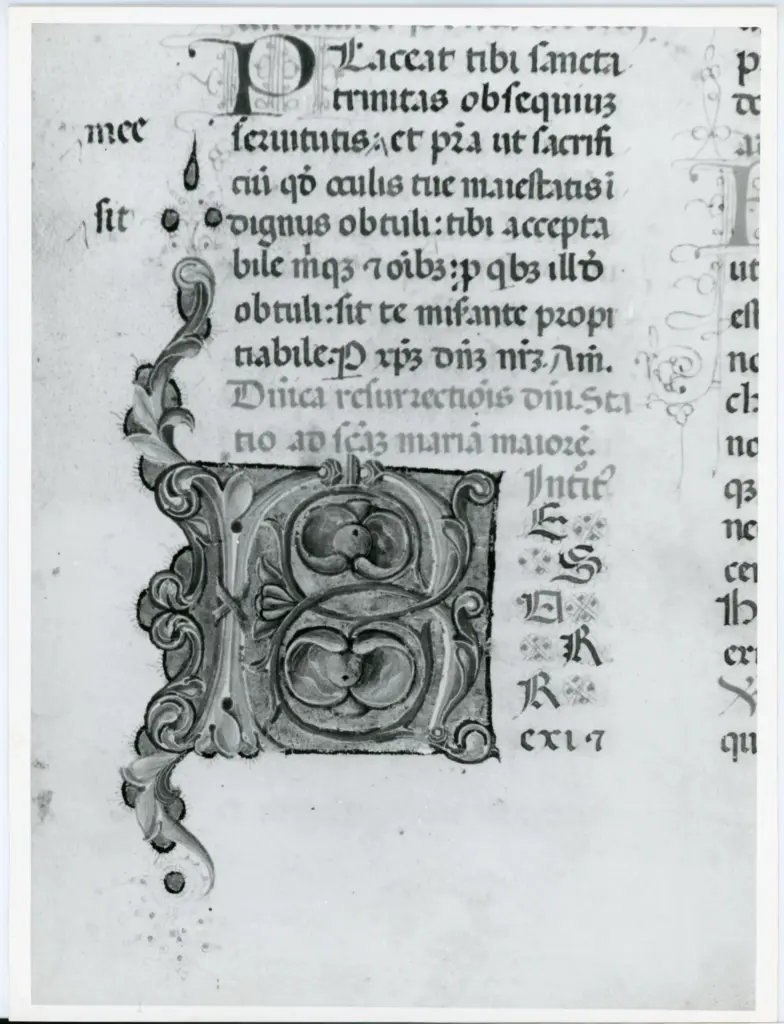 PLaceat tibi sancta
trinitas obsequiuʒ
seruitutis: et pr̄a ut sacrifi
ciū qđ oculis tue maiestatis ī
dignus obtuli: tibi accepta
bile m̄qʒ ⁊ oībʒ: p qbʒ illđ
obtuli: sit te miẜante propi
tiabile. P xp̄ʒ dn̄ʒ nr̄ʒ. Am̄.
Dn̄ica resurrectiōis dn̄i. Sta
tio ad scāʒ mariā maiorē.
Introit᾽
R
E
S
U
R
R
exi ⁊
mee
sit
p
ut
est
no
ch
no
qʒ
ne
cer
qu